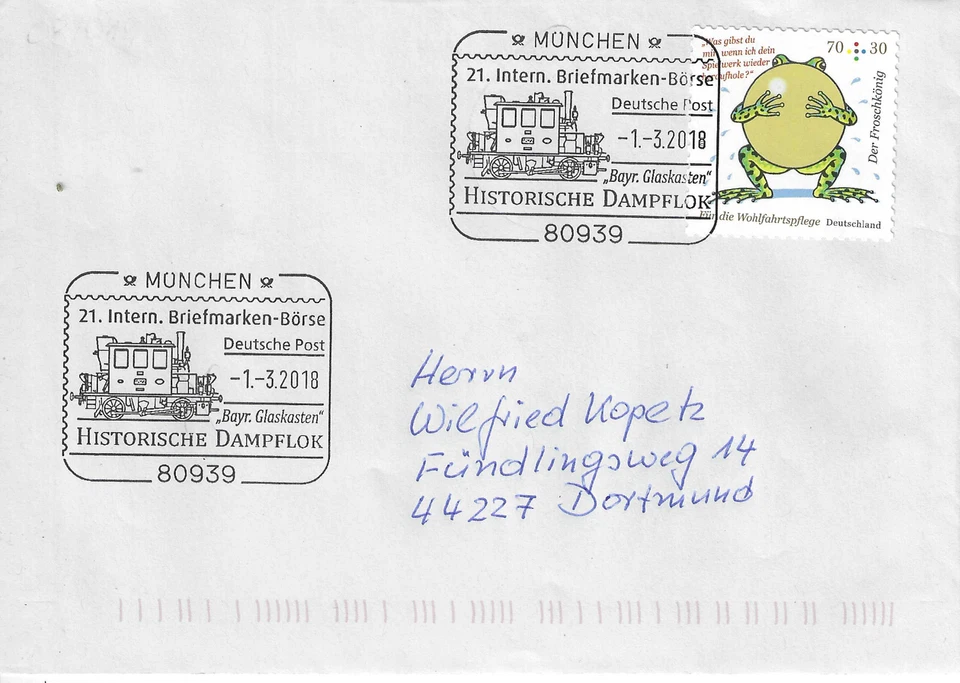 MÜNCHEN
21. Intern. Briefmarken-Börse
Deutsche Post
-1.-3.2018
„Bayr. Glaskasten"
HISTORISCHE DAMPFLOK
80939
„Was gibst du
mir, wenn ich dein
Spielwerk wieder
heraufhole?"
70 30
Der Froschkönig
Für die Wohlfahrtspflege Deutschland
MÜNCHEN
21. Intern. Briefmarken-Börse
Deutsche Post
-1.-3.2018
„Bayr. Glaskasten"
HISTORISCHE DAMPFLOK
80939
Herrn
Wilfried Kopetz
Fündlingsweg 14
44227 Dortmund